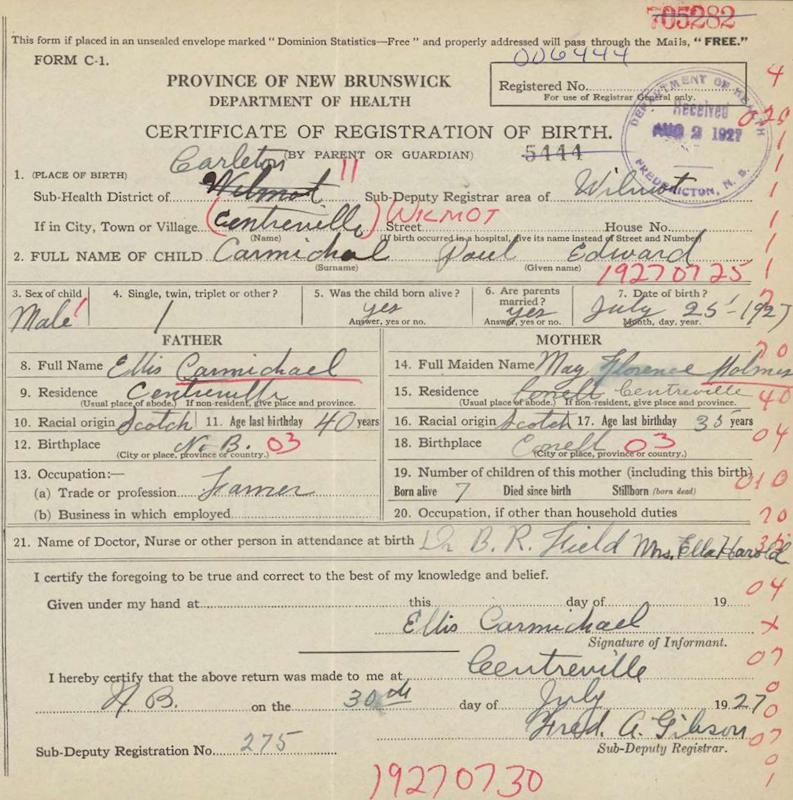 705282
This form if placed in an unsealed envelope marked "Dominion Statistics—Free" and properly addressed will pass through the Mails, "FREE."
006444
FORM C-1.
PROVINCE OF NEW BRUNSWICK
DEPARTMENT OF HEALTH
Registered No.
For use of Registrar General only.
DEPARTMENT OF HEALTH
Received
AUG 2 1927
FREDERICTON, N. B.
CERTIFICATE OF REGISTRATION OF BIRTH.
(BY PARENT OR GUARDIAN)
5444
Carleton 11
1. (PLACE OF BIRTH)
Sub-Health District of Wilmot Sub-Deputy Registrar area of Wilmot
If in City, Town or Village (Centreville) Street WILMOT House No.
(Name) (If birth occurred in a hospital, give its name instead of Street and Number)
2. FULL NAME OF CHILD Carmichal Paul Edward
(Surname) (Given name)
19270725
3. Sex of child 4. Single, twin, triplet or other? 5. Was the child born alive? 6. Are parents married? 7. Date of birth?
Male 1 1 yes yes July 25 1927
Answer, yes or no. Answer, yes or no. Month, day, year.
FATHER
8. Full Name Ellis Carmichael
9. Residence Centreville
(Usual place of abode.) If non-resident, give place and province.
10. Racial origin Scotch 11. Age last birthday 40 years
12. Birthplace N. B. 03
(City or place, province or country.)
13. Occupation:—
(a) Trade or profession Farmer
(b) Business in which employed
MOTHER
14. Full Maiden Name May Florence Holmes
15. Residence Conell Centreville
(Usual place of abode.) If non-resident, give place and province.
16. Racial origin Scotch 17. Age last birthday 35 years
18. Birthplace Conell 03
(City or place, province or country.)
19. Number of children of this mother (including this birth)
Born alive 7 Died since birth Stillborn (born dead)
20. Occupation, if other than household duties
21. Name of Doctor, Nurse or other person in attendance at birth Dr B. R. Field Mrs. Ella Harold
I certify the foregoing to be true and correct to the best of my knowledge and belief.
Given under my hand at this day of 19
Ellis Carmichael
Signature of Informant.
I hereby certify that the above return was made to me at Centreville
N. B. on the 30th day of July 1927
Fred. A. Gibson
Sub-Deputy Registration No. 275 Sub-Deputy Registrar.
19270730